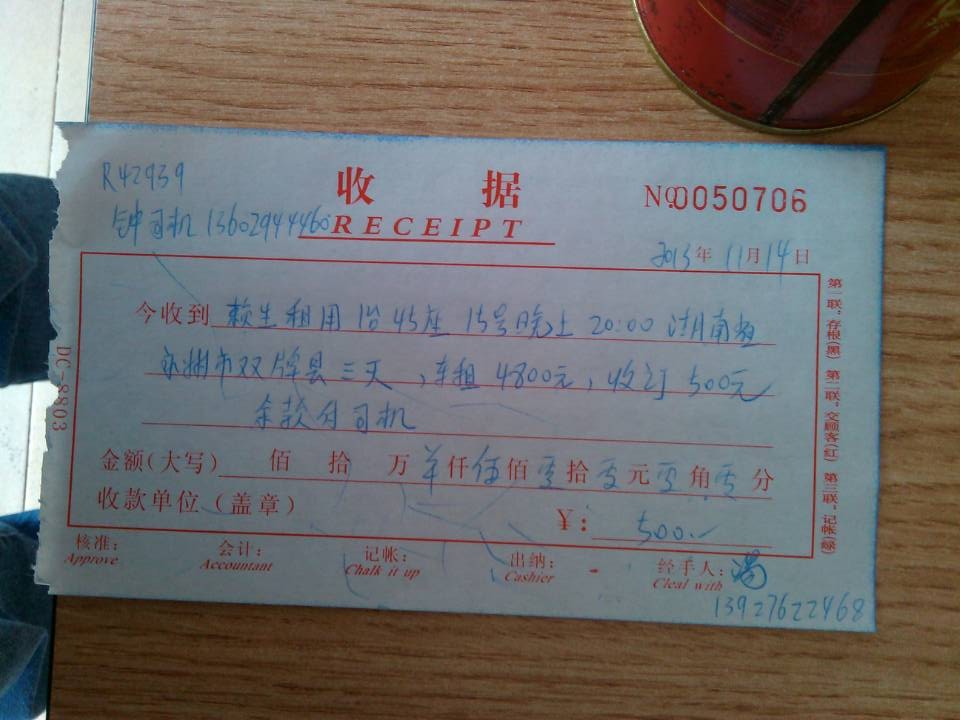 R42939
收 据
No 0050706
钟司机 13602944460
RECEIPT
2013年11月14日
今收到 赖生租用1台45座 15号晚上20:00 湖南
永州市双牌县三天,车租4800元,收订500元
余款付司机
金额(大写) 佰 拾 万 仟伍佰零拾零元零角零分
收款单位(盖章)
¥: 500.
核准: 会计: 记帐: 出纳: 经手人:
Approve Accountant Chalk it up Cashier Cleal with
13927622468
DC-8803
第一联:存根(黑) 第二联:交顾客(红) 第三联:记帐(绿)